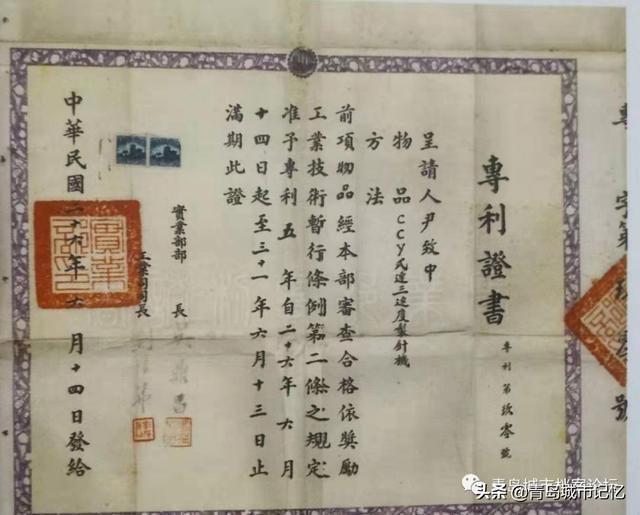 字第
號
專利證書
專利第玖零號
呈請人尹致中
物品CCY氏 三速度製針機
方法
前項物品經本部審查合格依獎勵
工業技術暫行條例第二條之規定
准予專利五年自二十六年六月
十四日起至三十一年六月十三日止
滿期此證
實業部部長吳鼎昌
工業司司長
中華民國二十六年 月十四日發給
實業部印
青岛城市档案论坛
头条@青岛城市记忆